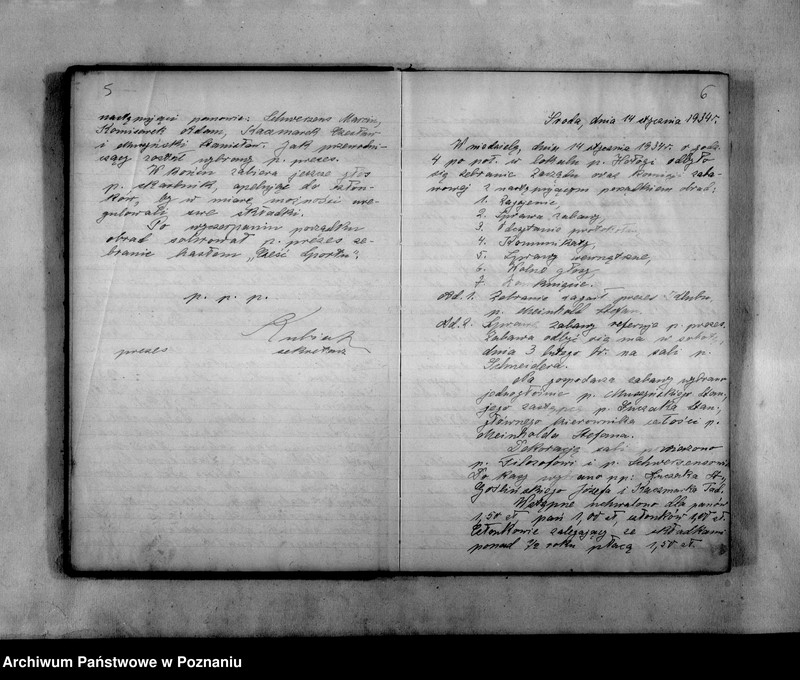 5
następujący panowie: Schwersens Marcin,
Komisarek Adam, Kaczmarek Czesław
i Muszyński Stanisław. Jak przewodni-
czący został wybrany p. prezes.
W końcu zabiera jeszcze głos
p. skarbnik, apelując do człon-
ków, by w miarę możności ure-
gulowali swe składki.
Po wyczerpaniu porządku
obrad solwował p. prezes ze-
branie hasłem „Cześć Sportu".
p. p. p.
Kubiak
prezes sekretarz
6
Środa, dnia 14 stycznia 1934 r.
W niedzielę, dnia 14 stycznia 1934 r. o godz.
4 po poł. w lokalu p. Hałogi odbyło
się zebranie zarządu oraz komisji zaba-
wowej z następującym porządkiem obrad:
1. Zagajenie,
2. Sprawa zabawy,
3. Odczytanie protokołu,
4. Komunikaty,
5. Sprawy wewnętrzne,
6. Wolne głosy,
7.
Ad. 1. Zebranie zagaił prezes klubu,
p. Meinhold Stefan.
Ad. 2. Sprawę zabawy referuje p. prezes.
Zabawa odbyć się ma w sobotę,
dnia 3 lutego br. na sali p.
Schneidera.
Na gospodarza zabawy wybrano
jednogłośnie p. Muszyńskiego Stan.,
jego zastępcę p. Łuczaka Stan.,
głównego kierownika całości p.
Meinholda Stefana.
Dekorację sali powierzono
p. Filozofowi i p. Schwersensowi.
Do kasy wybrano pp: Łuczaka St.,
Goślińskiego Józefa i Kaczmarka Tad.
Wstępne uchwalono dla panów
1,50 zł, pań 1,00 zł, członków 1,00 zł.
Członkowie zalegający ze składkami
ponad ½ roku płacą 1,50 zł.
Archiwum Państwowe w Poznaniu